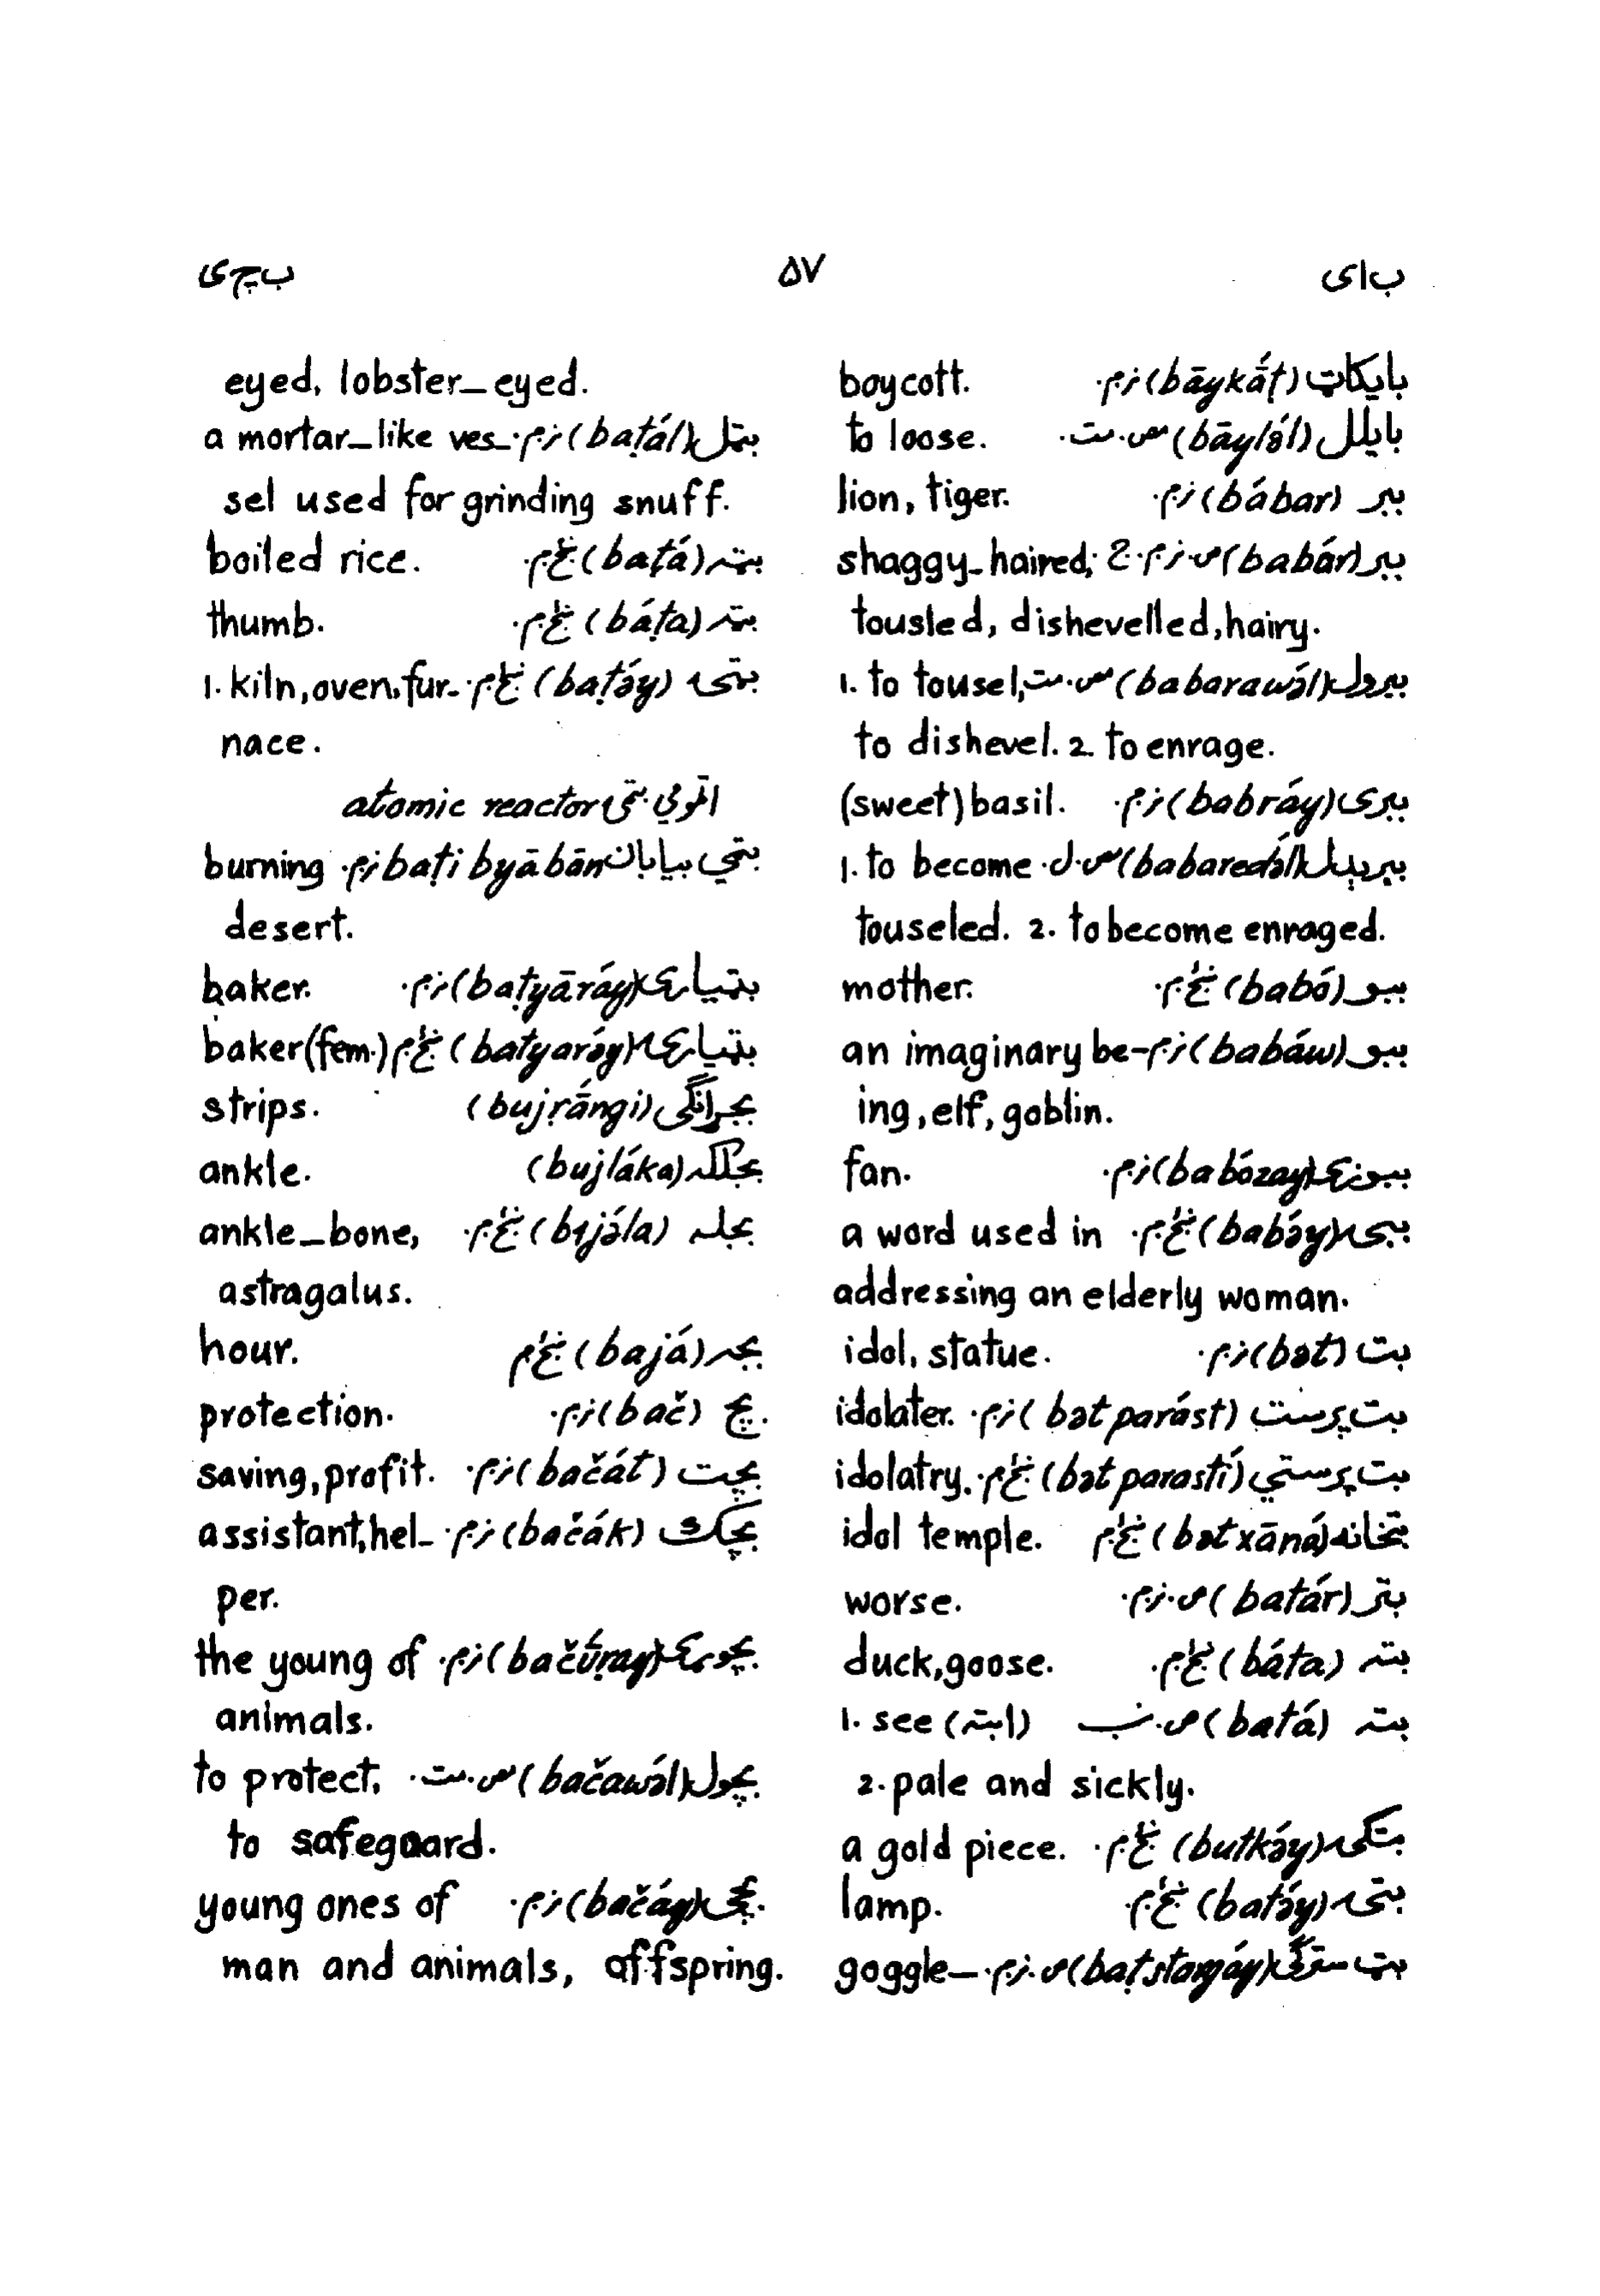 ب ای ۵۷ ب چ ی
بایکاټ (bāykā́ṭ) نر.م. boycott.
بایلل (bāylə́l) مص.مت. to loose.
ببر (bábar) نر.م. lion, tiger.
ببر (babár) ص.نر.م. ج shaggy-haired;
tousled, dishevelled, hairy.
ببرول (babarawə́l) مص.مت. 1. to tousel,
to dishevel. 2. to enrage.
ببری (babráy) نر.م. (sweet) basil.
ببرېدل (babaredə́l) مص.ل. 1. to become
touseled. 2. to become enraged.
ببو (babó) ښځ.م. mother.
ببو (babáw) نر.م. an imaginary be-
ing, elf, goblin.
ببوزی (babózay) نر.م. fan.
ببۍ (babə́y) ښځ.م. a word used in
addressing an elderly woman.
بت (bət) نر.م. idol, statue.
بت پرست (bət parást) نر.م. idolater.
بت پرستي (bət parastí) ښځ.م. idolatry.
بتخانه (bətxāná) ښځ.م. idol temple.
بتر (batár) ص.نر.م. worse.
بته (báta) ښځ.م. duck, goose.
بته (batá) ص.ښ 1. see (ابته)
2. pale and sickly.
بتکۍ (butkə́y) ښځ.م. a gold piece.
بتۍ (batə́y) ښځ.م. lamp.
بټ سترگی (baṭstərgáy) ص.نر.م. goggle-
eyed, lobster-eyed.
بټل (baṭál) نر.م. a mortar-like ves-
sel used for grinding snuff.
بټه (baṭá) ښځ.م. boiled rice.
بټه (báṭa) ښځ.م. thumb.
بټۍ (baṭə́y) ښځ.م. 1. kiln, oven, fur-
nace.
اټومي بټۍ atomic reactor
بټي بیابان baṭi byābān نر.م. burning
desert.
بټیاری (baṭyāráy) نر.م. baker.
بټیارۍ (batyarə́y) ښځ.م. baker (fem.)
بجړانگی (bujṛā́ngi) strips.
بجلکه (bujláka) ankle.
بجله (bɨjə́la) ښځ.م. ankle-bone,
astragalus.
بجه (bajá) ښځ.م hour.
بچ (bač) نر.م. protection.
بچت (bačát) نر.م. saving, profit.
بچک (bačák) نر.م. assistant, hel-
per.
بچوړی (bačū́ṛay) نر.م. the young of
animals.
بچول (bačawə́l) مص.مت. to protect,
to safeguard.
بچی (bačáy) نر.م. young ones of
man and animals, offspring.